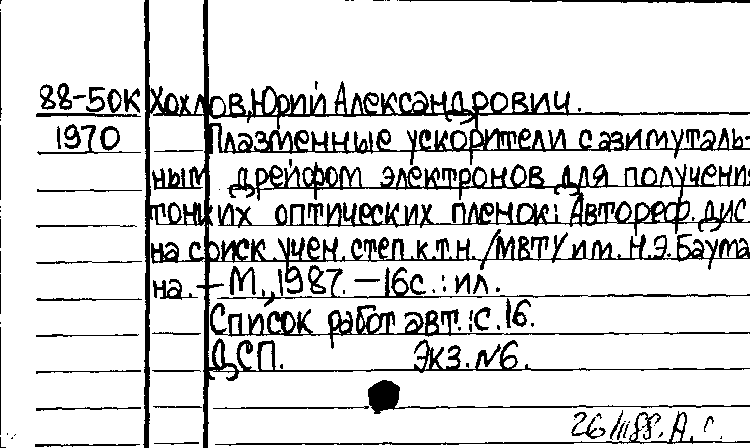 88-50К Хохлов, Юрий Александрович.
1970 Плазменные ускорители с азимуталь-
ным дрейфом электронов для получения
тонких оптических пленок: Автореф. дис.
на соиск. учен. степ. к.т.н. /МВТУ им. Н.Э.Баума-
на. – М., 1987. – 16с. : ил.
Список работ авт.: с. 16.
ДСП. Экз. №6.
26/III 88. А. С.